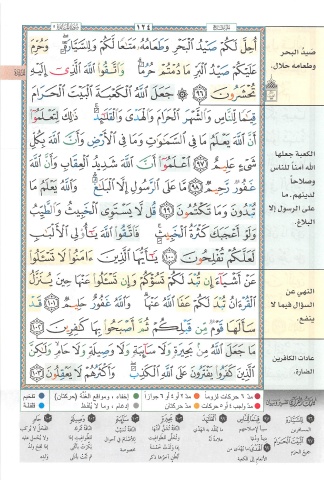 ١٢٤
أُحِلَّ لَكُمْ صَيْدُ ٱلْبَحْرِ وَطَعَامُهُۥ مَتَٰعًا لَّكُمْ وَلِلسَّيَّارَةِ ۖ وَحُرِّمَ
عَلَيْكُمْ صَيْدُ ٱلْبَرِّ مَا دُمْتُمْ حُرُمًا ۗ وَٱتَّقُوا۟ ٱللَّهَ ٱلَّذِىٓ إِلَيْهِ
تُحْشَرُونَ ٩٦ ۞ جَعَلَ ٱللَّهُ ٱلْكَعْبَةَ ٱلْبَيْتَ ٱلْحَرَامَ
قِيَٰمًا لِّلنَّاسِ وَٱلشَّهْرَ ٱلْحَرَامَ وَٱلْهَدْىَ وَٱلْقَلَٰٓئِدَ ۚ ذَٰلِكَ لِتَعْلَمُوٓا۟
أَنَّ ٱللَّهَ يَعْلَمُ مَا فِى ٱلسَّمَٰوَٰتِ وَمَا فِى ٱلْأَرْضِ وَأَنَّ ٱللَّهَ بِكُلِّ
شَىْءٍ عَلِيمٌ ٩٧ ٱعْلَمُوٓا۟ أَنَّ ٱللَّهَ شَدِيدُ ٱلْعِقَابِ وَأَنَّ ٱللَّهَ
غَفُورٌ رَّحِيمٌ ٩٨ مَّا عَلَى ٱلرَّسُولِ إِلَّا ٱلْبَلَٰغُ ۗ وَٱللَّهُ يَعْلَمُ مَا
تُبْدُونَ وَمَا تَكْتُمُونَ ٩٩ قُل لَّا يَسْتَوِى ٱلْخَبِيثُ وَٱلطَّيِّبُ
وَلَوْ أَعْجَبَكَ كَثْرَةُ ٱلْخَبِيثِ ۚ فَٱتَّقُوا۟ ٱللَّهَ يَٰٓأُو۟لِى ٱلْأَلْبَٰبِ
لَعَلَّكُمْ تُفْلِحُونَ ١٠٠ يَٰٓأَيُّهَا ٱلَّذِينَ ءَامَنُوا۟ لَا تَسْـَٔلُوا۟
عَنْ أَشْيَآءَ إِن تُبْدَ لَكُمْ تَسُؤْكُمْ وَإِن تَسْـَٔلُوا۟ عَنْهَا حِينَ يُنَزَّلُ
ٱلْقُرْءَانُ تُبْدَ لَكُمْ عَفَا ٱللَّهُ عَنْهَا ۗ وَٱللَّهُ غَفُورٌ حَلِيمٌ ١٠١ قَدْ
سَأَلَهَا قَوْمٌ مِّن قَبْلِكُمْ ثُمَّ أَصْبَحُوا۟ بِهَا كَٰفِرِينَ ١٠٢
مَا جَعَلَ ٱللَّهُ مِنۢ بَحِيرَةٍ وَلَا سَآئِبَةٍ وَلَا وَصِيلَةٍ وَلَا حَامٍ ۙ وَلَٰكِنَّ
ٱلَّذِينَ كَفَرُوا۟ يَفْتَرُونَ عَلَى ٱللَّهِ ٱلْكَذِبَ ۖ وَأَكْثَرُهُمْ لَا يَعْقِلُونَ ١٠٣
صيد البحر
وطعامه حلال.
الكعبة جعلها
الله أمناً للناس
وصلاحاً
لدينهم. ما
على الرسول إلا
البلاغ.
النهي عن
السؤال فيما لا
ينفع.
عادات الكافرين
الضارة.
مدّ ٦ حركات لزوماً
مدّ ٢ أو ٤ أو ٦ جوازاً
إخفاء، ومواقع الغُنَّة (حركتان)
تفخيم
مدّ واجب ٤ أو ٥ حركات
مدّ حركتان
إدغام، وما لا يُلفظ
قلقلة